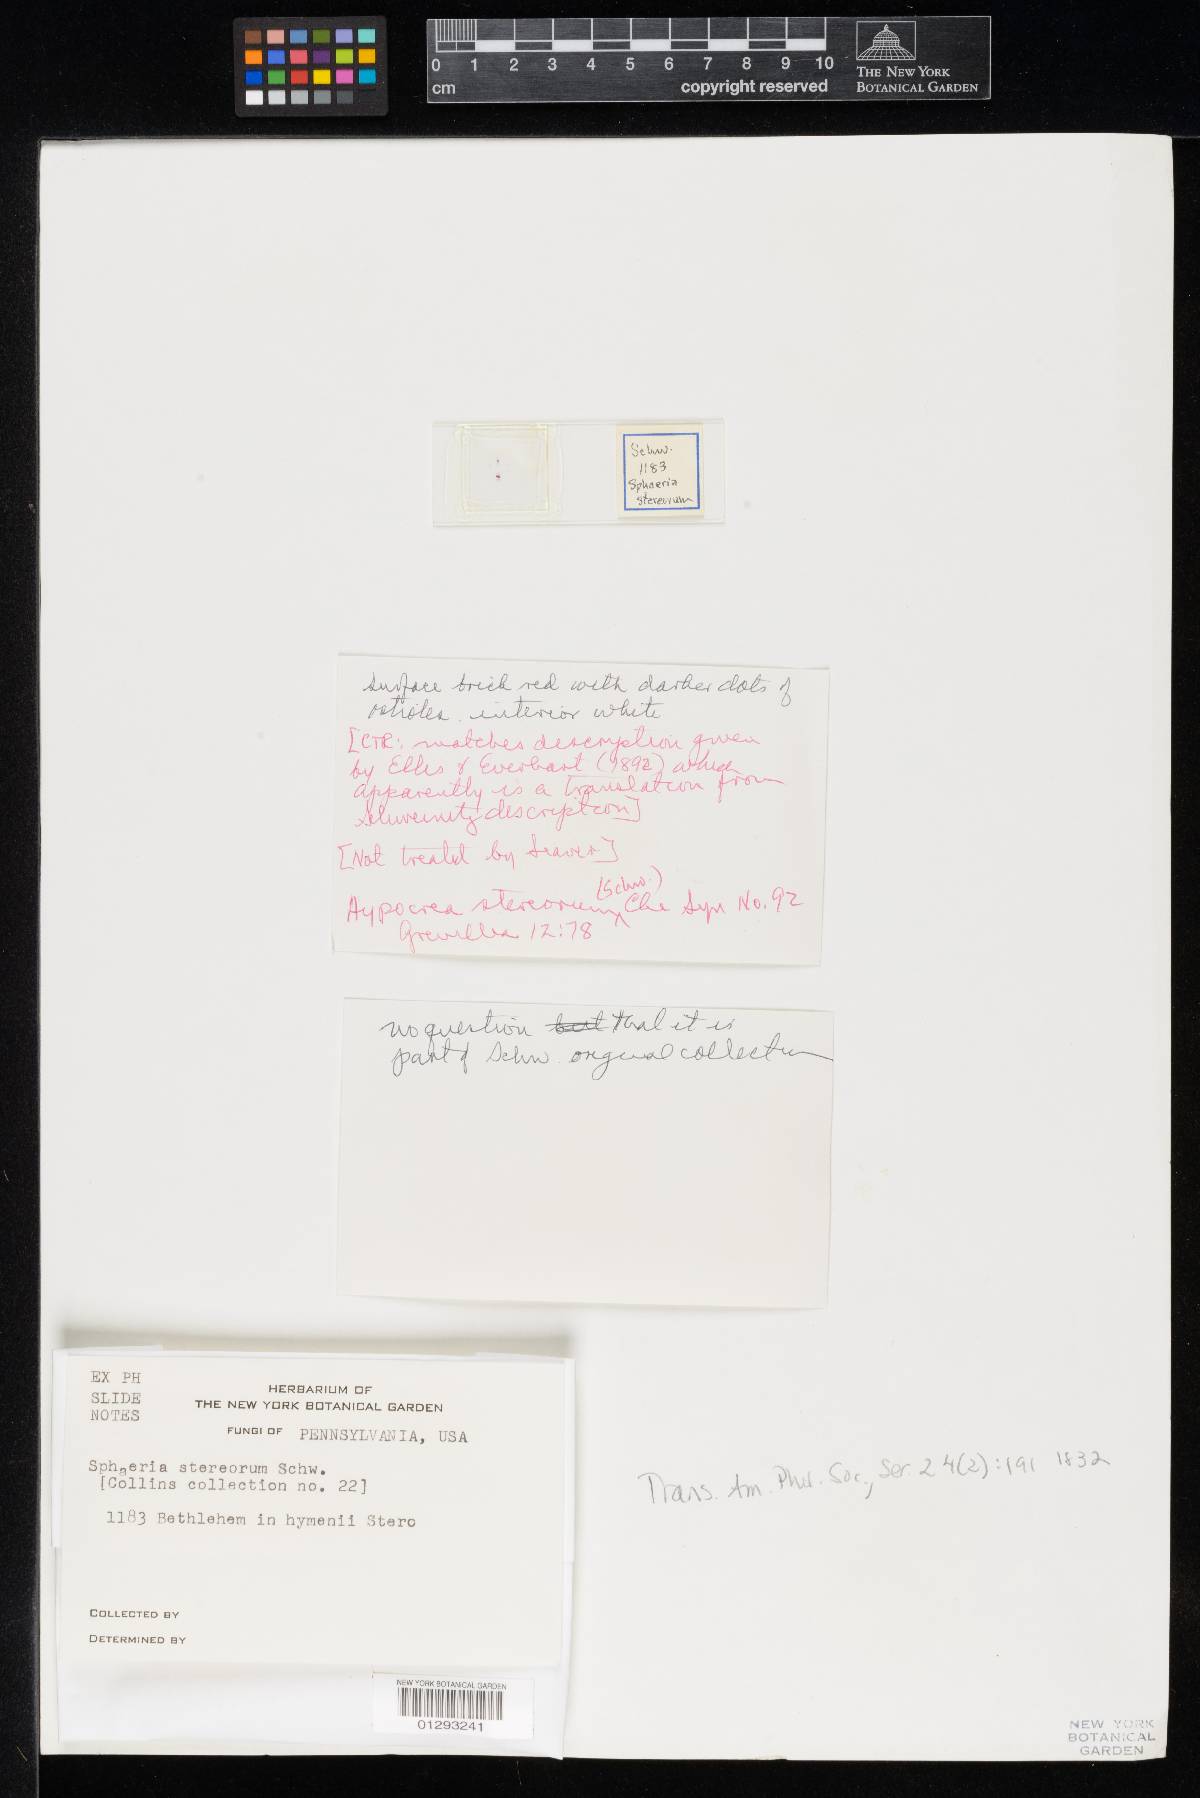 0 1 2 3 4 5 6 7 8 9 10
cm
copyright reserved
THE NEW YORK
BOTANICAL GARDEN
Schw.
1183
Sphaeria
stereorum
surface brick red with darker dots of
ostioles. interior white
[CTR: matches description given
by Ellis & Everhart (1892) which
apparently is a translation from
Schweinitz description]
[Not treated by Seaver]
(Schw.)
Hypocrea stereorum Cke Syn No. 92
Grevillea 12:78
no question but that it is
part of Schw. original collection
EX PH
SLIDE
NOTES
HERBARIUM OF
THE NEW YORK BOTANICAL GARDEN
FUNGI OF PENNSYLVANIA, USA
Sphaeria stereorum Schw.
[Collins collection no. 22]
1183 Bethlehem in hymenii Stero
COLLECTED BY
DETERMINED BY
Trans. Am. Phil. Soc., Ser. 2 4(2):191 1832
NEW YORK BOTANICAL GARDEN
01293241
NEW YORK
BOTANICAL
GARDEN